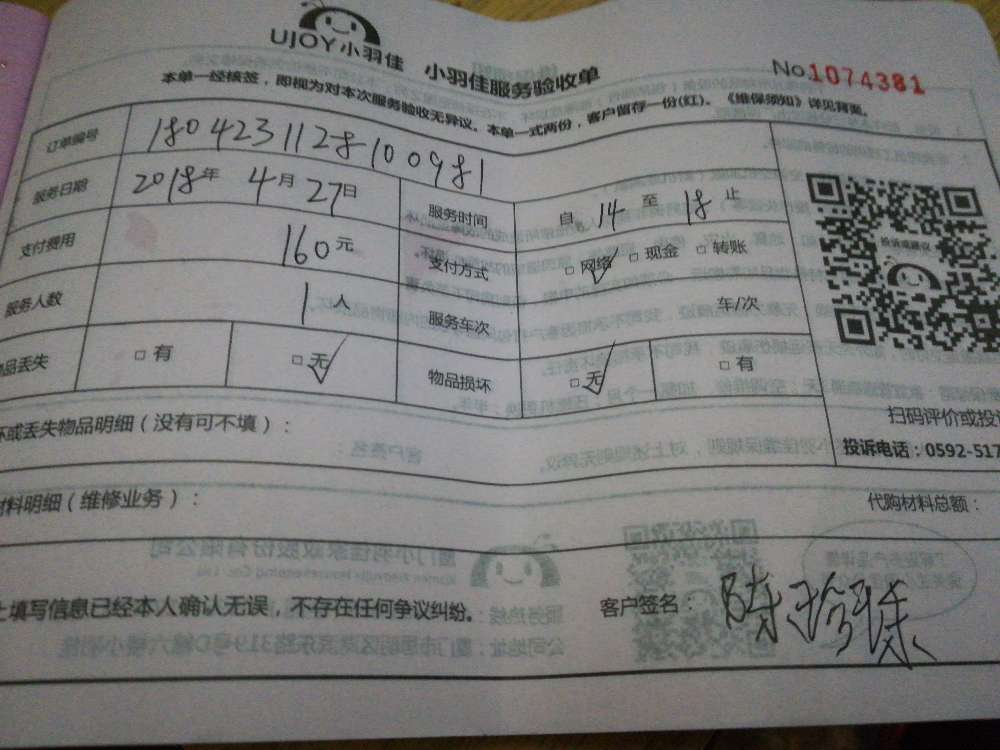 UJOY小羽佳 小羽佳服务验收单 No.1074381
本单一经核签，即视为对本次服务验收无异议。本单一式两份，客户留存一份(红)。《维保须知》详见背面。
订单编号 1804231128100981
服务日期 2018年 4月 27日 服务时间 自 14 至 18 止
支付费用 160元 支付方式 □网络 □现金 □转账
服务人数 1人 服务车次 车/次
品丢失 □有 □无 物品损坏 □无 □有
投诉或建议
扫码评价或投
投诉电话：0592-517
坏或丢失物品明细（没有可不填）：
材料明细（维修业务）： 代购材料总额：
上填写信息已经本人确认无误，不存在任何争议纠纷。 客户签名：